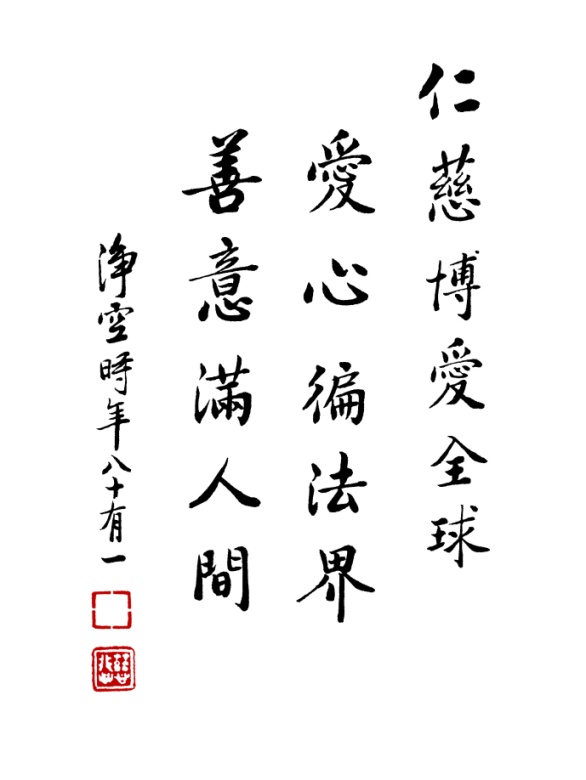 仁慈博愛全球
愛心徧法界
善意滿人間
淨空時年八十有一